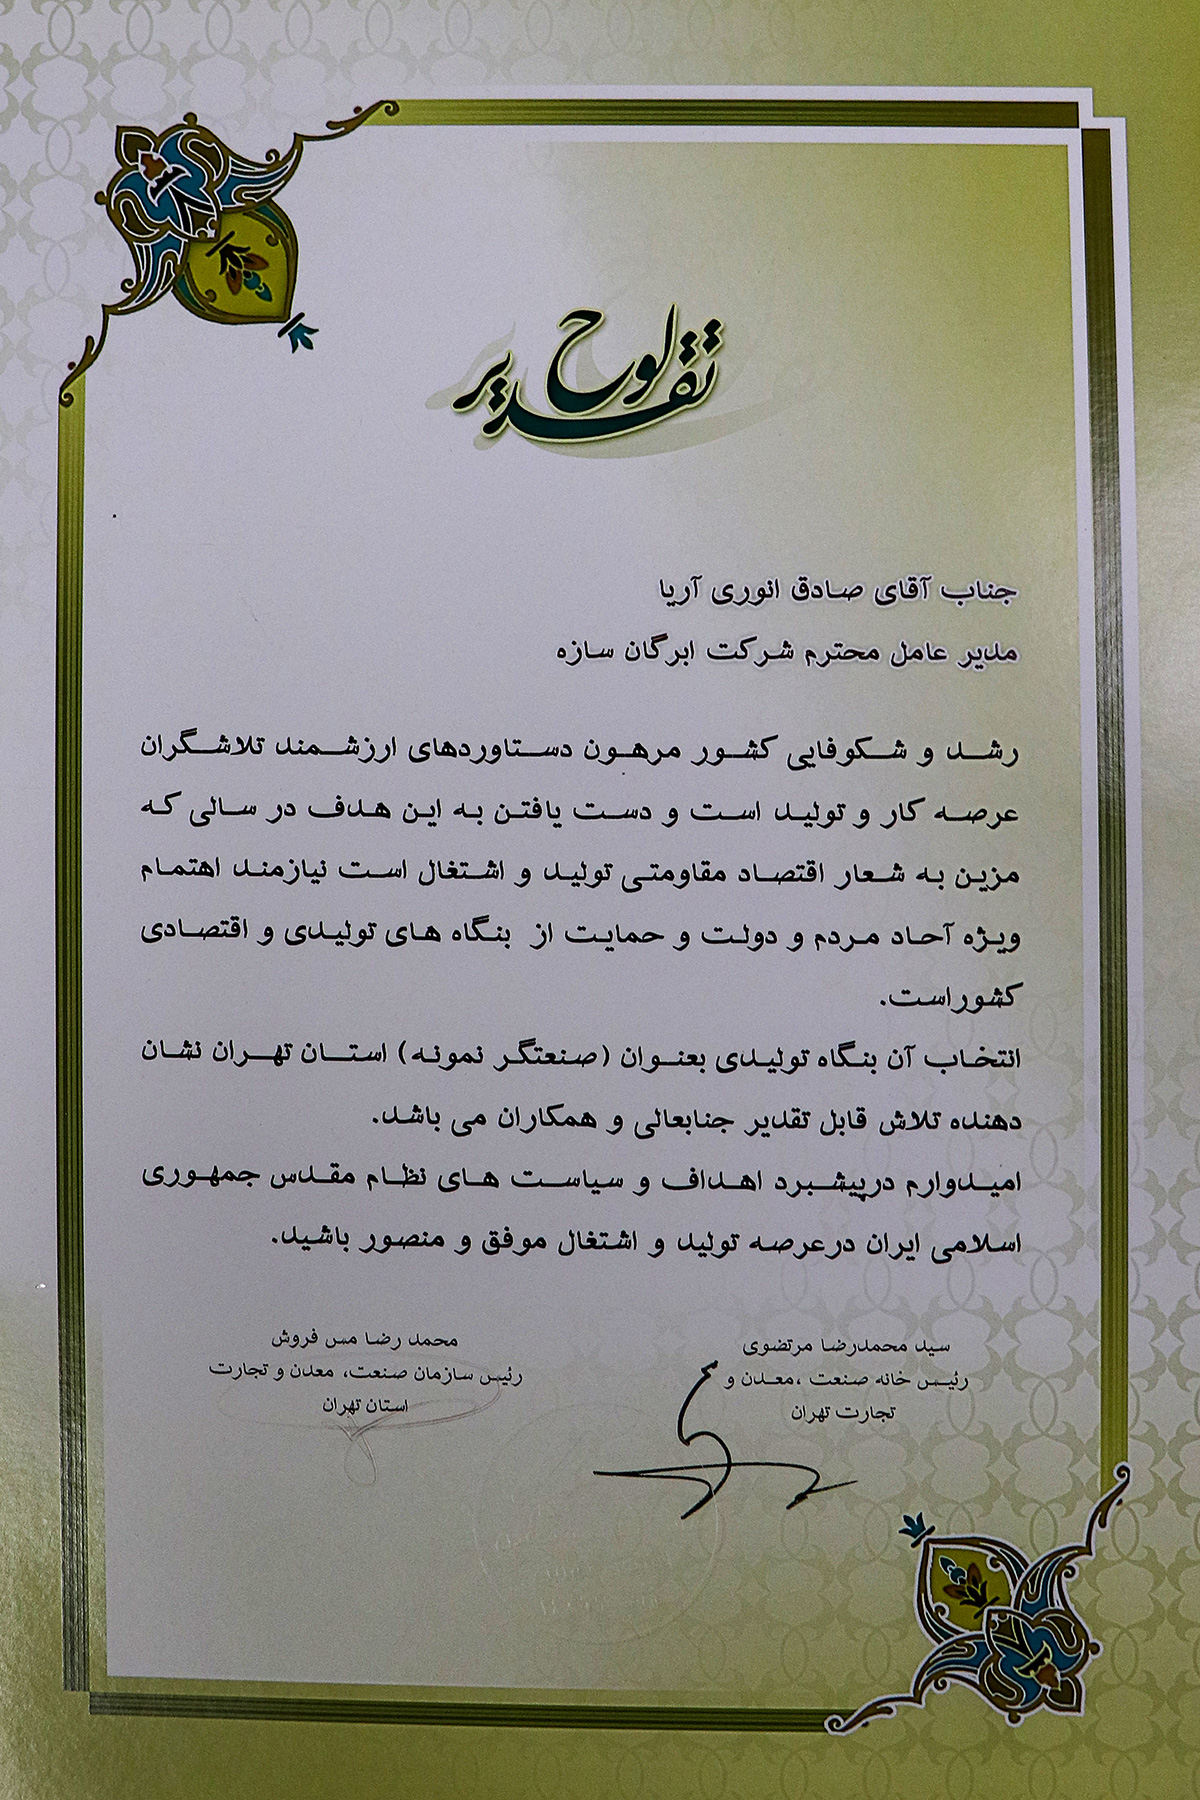 لوح تقدیر
جناب آقای صادق انوری آریا
مدیر عامل محترم شرکت ابرگان سازه
رشد و شکوفایی کشور مرهون دستاوردهای ارزشمند تلاشگران
عرصه کار و تولید است و دست یافتن به این هدف در سالی که
مزین به شعار اقتصاد مقاومتی تولید و اشتغال است نیازمند اهتمام
ویژه آحاد مردم و دولت و حمایت از بنگاه های تولیدی و اقتصادی
کشوراست.
انتخاب آن بنگاه تولیدی بعنوان (صنعتگر نمونه) استان تهران نشان
دهنده تلاش قابل تقدیر جنابعالی و همکاران می باشد.
امیدوارم درپیشبرد اهداف و سیاست های نظام مقدس جمهوری
اسلامی ایران درعرصه تولید و اشتغال موفق و منصور باشید.
سید محمدرضا مرتضوی
رئیس خانه صنعت ،معدن و
تجارت تهران
محمد رضا مس فروش
رئیس سازمان صنعت، معدن و تجارت
استان تهران